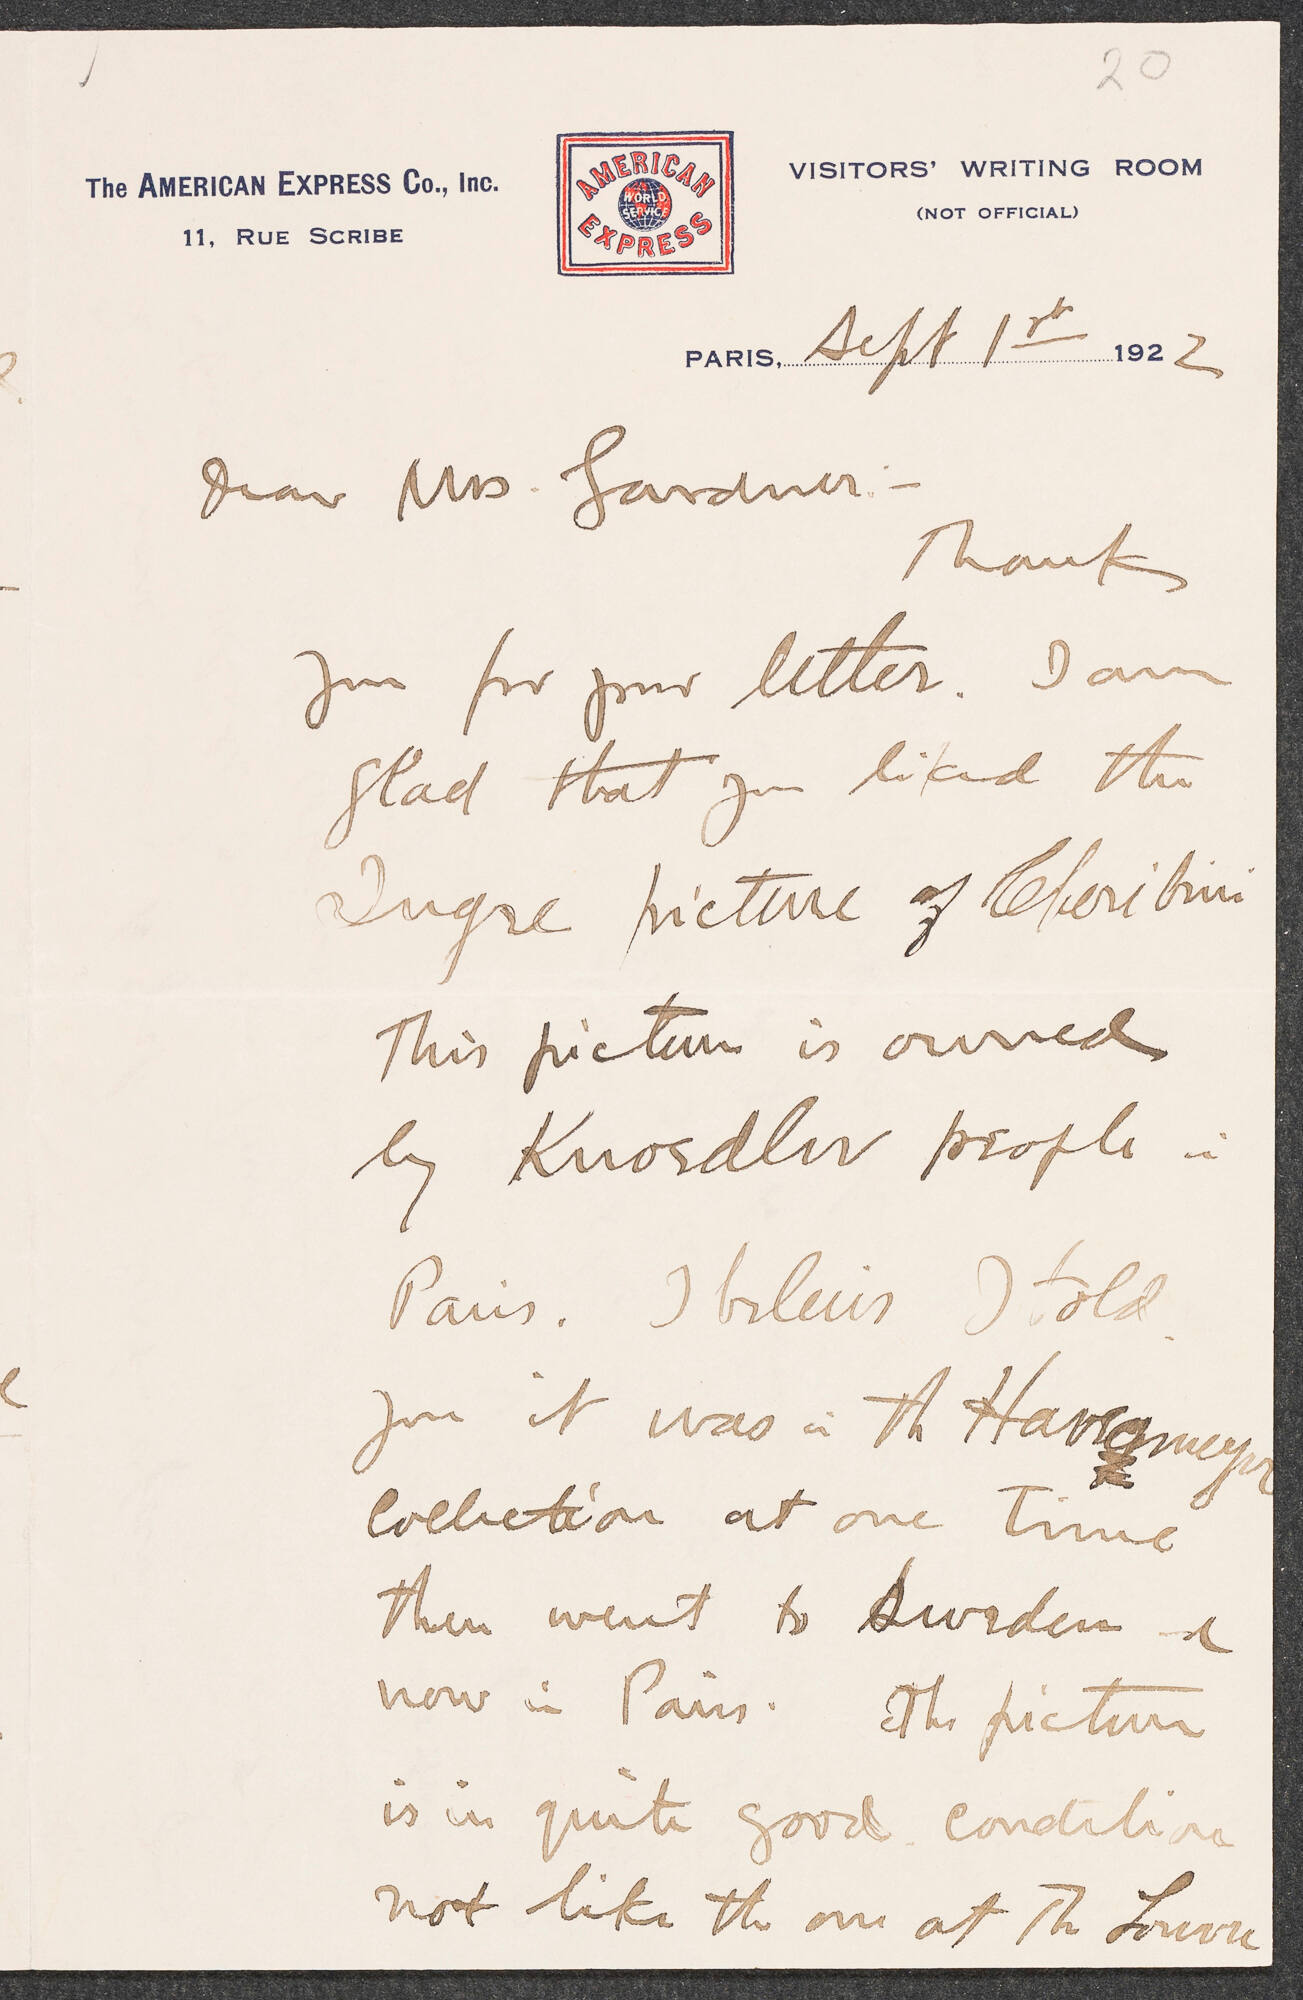 20
The AMERICAN EXPRESS Co., Inc.
11, RUE SCRIBE
AMERICAN
WORLD
SERVICE
EXPRESS
VISITORS' WRITING ROOM
(NOT OFFICIAL)
PARIS, Sept 1st 1922
Dear Mrs. Gardner:-
Thank
you for your letter. I am
glad that you liked the
Ingre picture of Cheribini
This picture is owned
by Knoedler people in
Paris. I beleive I told
you it was in the Havemeyer
Collection at one time
then went to Sweden &
now in Paris. The picture
is in quite good condition
not like the one at the Louvre